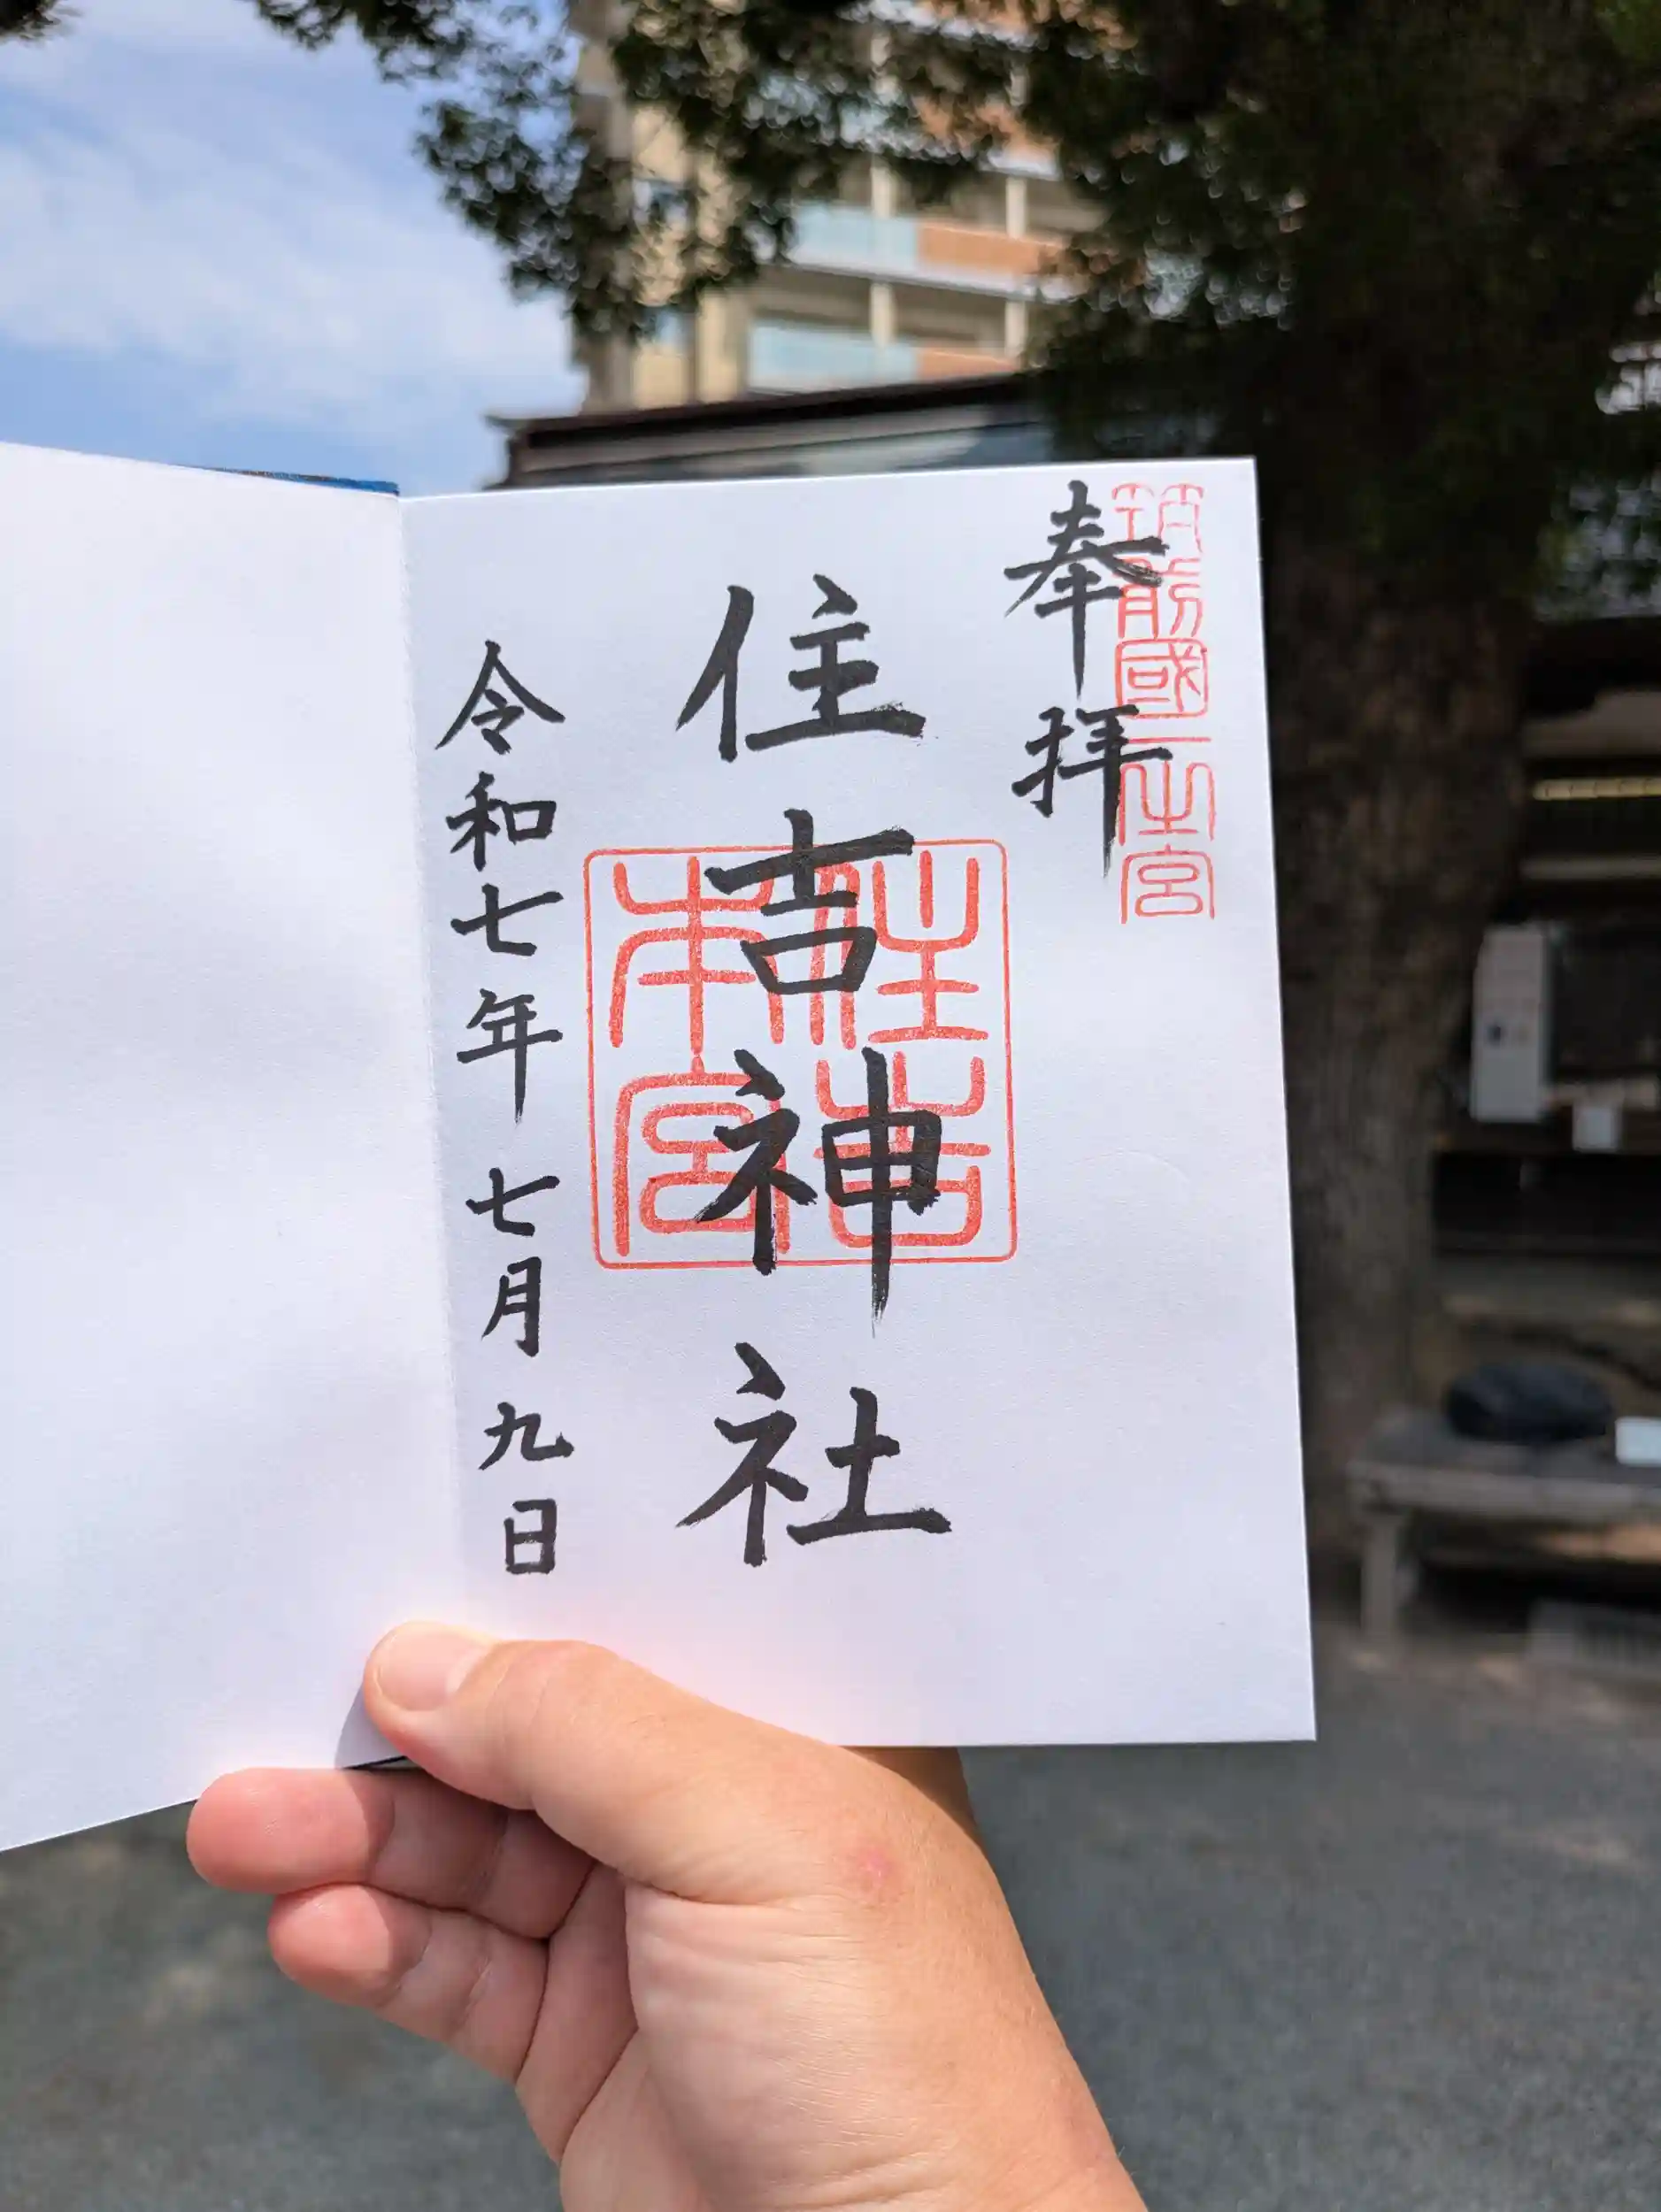 奉拝
筑前國一之宮
住吉神社
住吉
本宮
令和七年 七月 九日